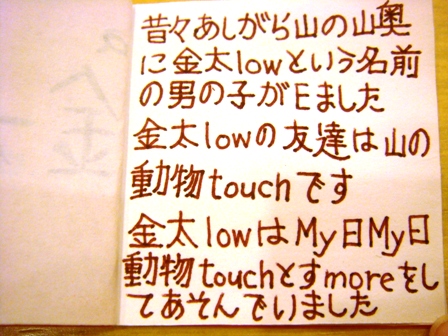 昔々あしがら山の山奥
に金太lowという名前
の男の子がEました
金太lowの友達は山の
動物touchです
金太lowはMy日My日
動物touchとすmoreをし
てあそんでいました